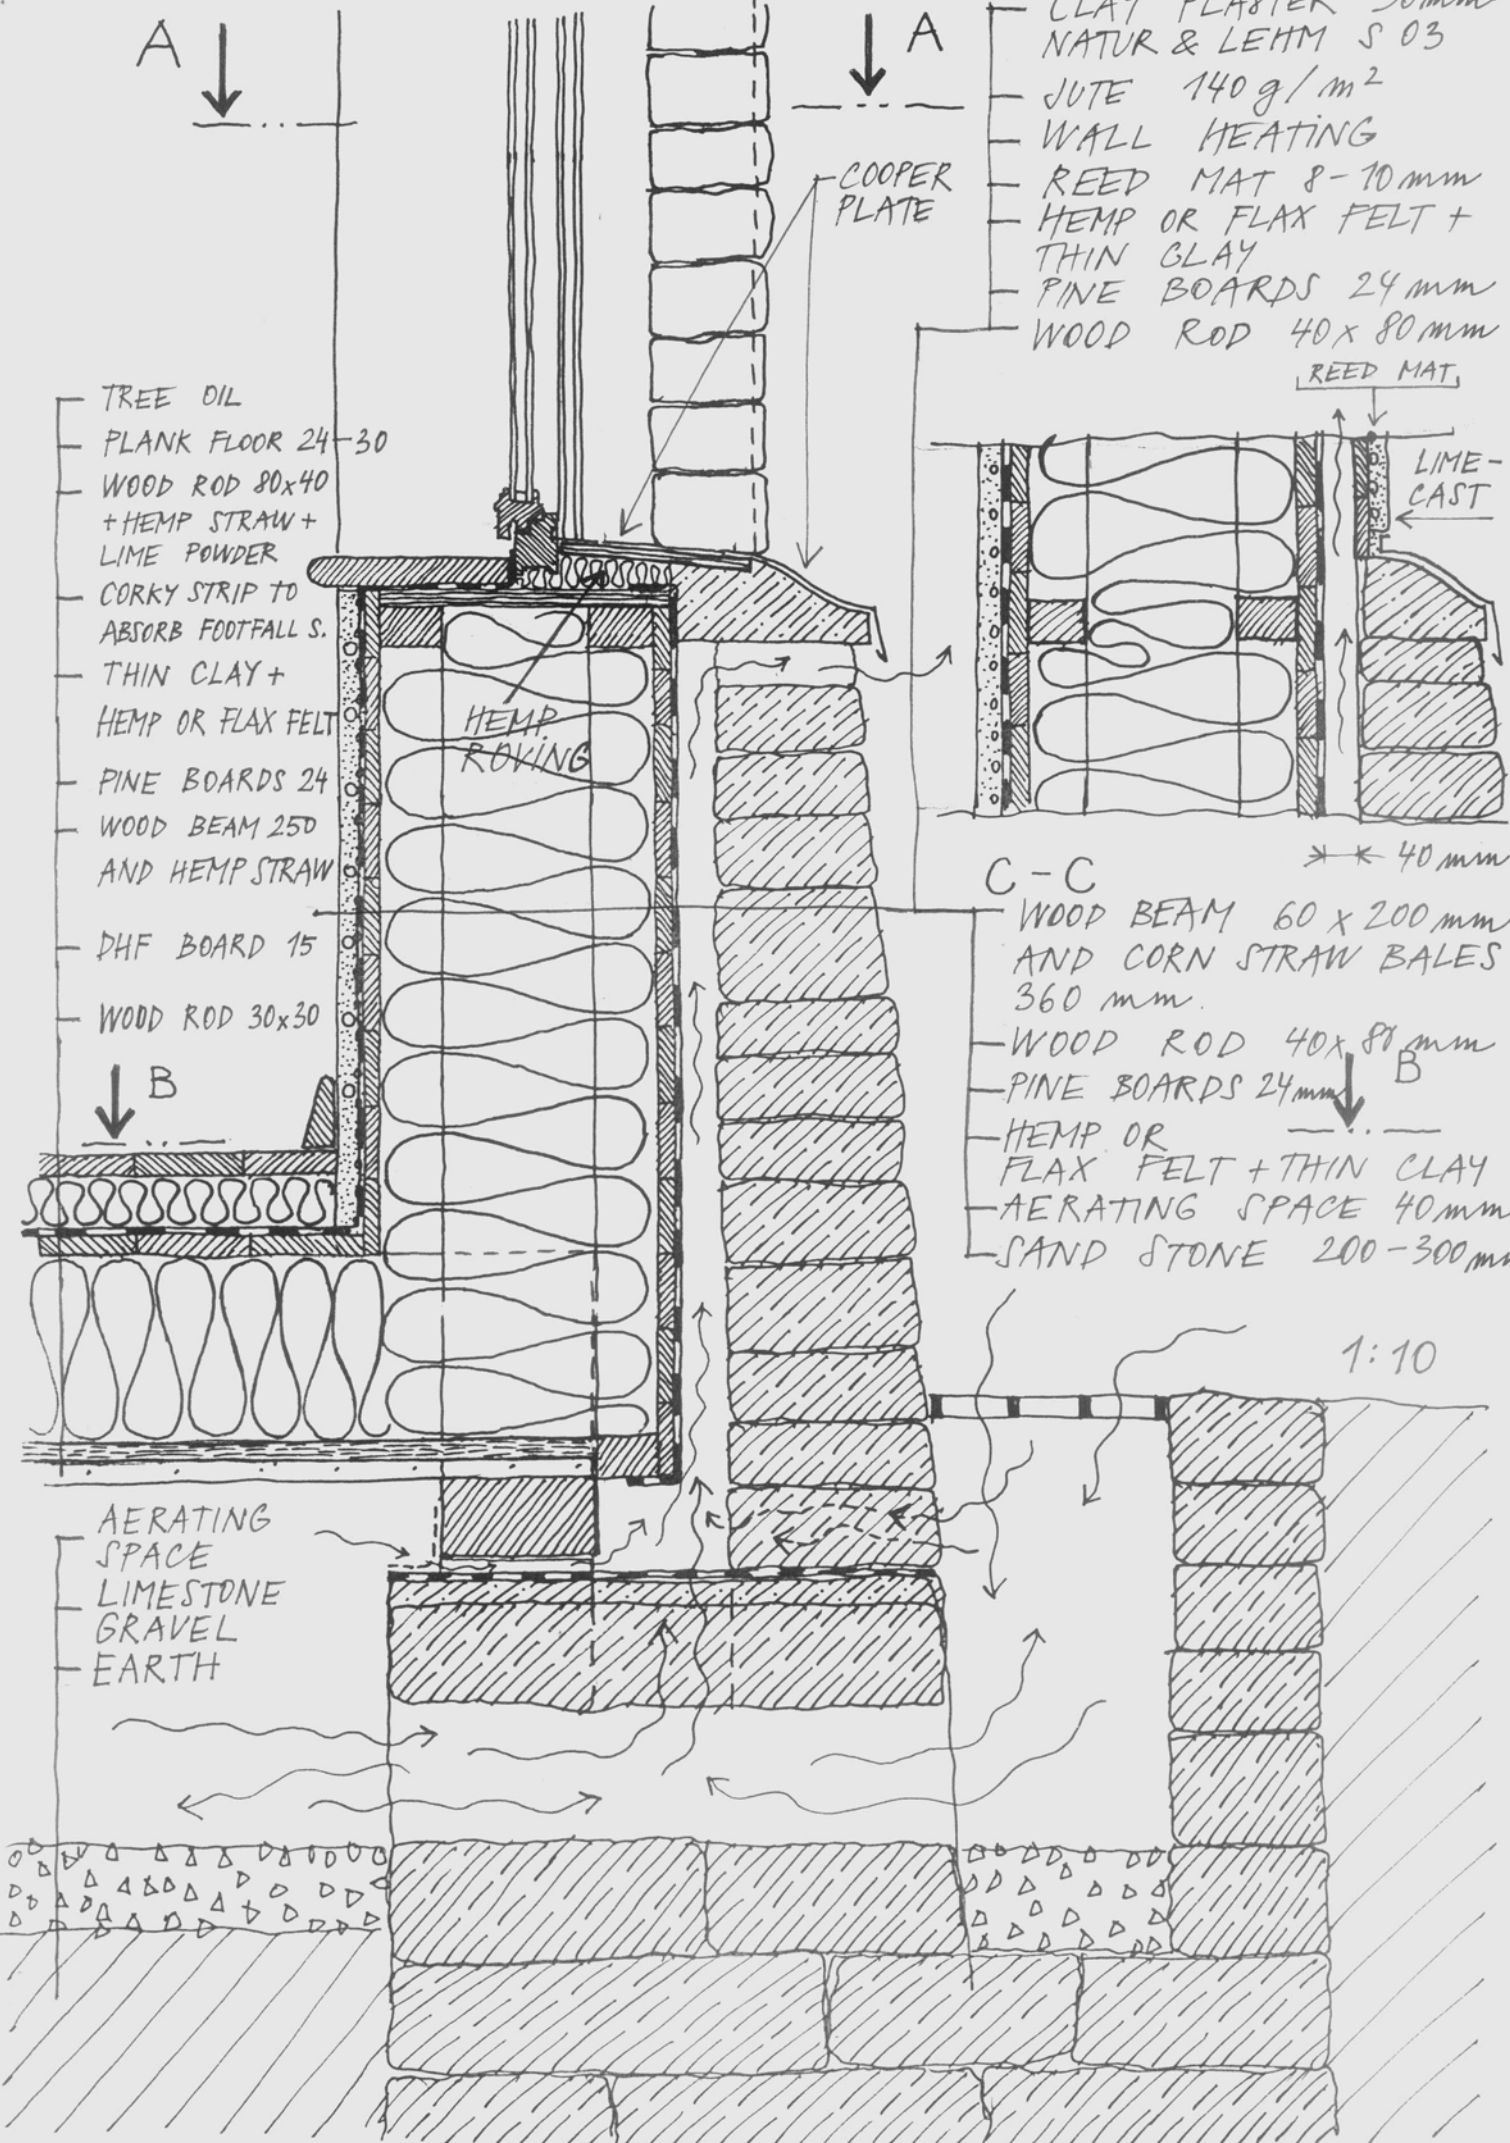 A
A
CLAY PLASTER 30mm
NATUR & LEHM S 03
JUTE 140 g/m²
WALL HEATING
REED MAT 8-10mm
HEMP OR FLAX FELT +
THIN CLAY
PINE BOARDS 24mm
WOOD ROD 40x80mm
COOPER
PLATE
REED MAT
LIME-
CAST
TREE OIL
PLANK FLOOR 24-30
WOOD ROD 80x40
+HEMP STRAW+
LIME POWDER
CORKY STRIP TO
ABSORB FOOTFALL S.
THIN CLAY+
HEMP OR FLAX FELT
PINE BOARDS 24
WOOD BEAM 250
AND HEMP STRAW
DHF BOARD 15
WOOD ROD 30x30
HEMP
ROVING
40mm
C-C
WOOD BEAM 60 x 200mm
AND CORN STRAW BALES
360 mm.
WOOD ROD 40x80mm
PINE BOARDS 24mm
HEMP OR
FLAX FELT + THIN CLAY
AERATING SPACE 40mm
SAND STONE 200-300mm
B
B
1:10
AERATING
SPACE
LIMESTONE
GRAVEL
EARTH